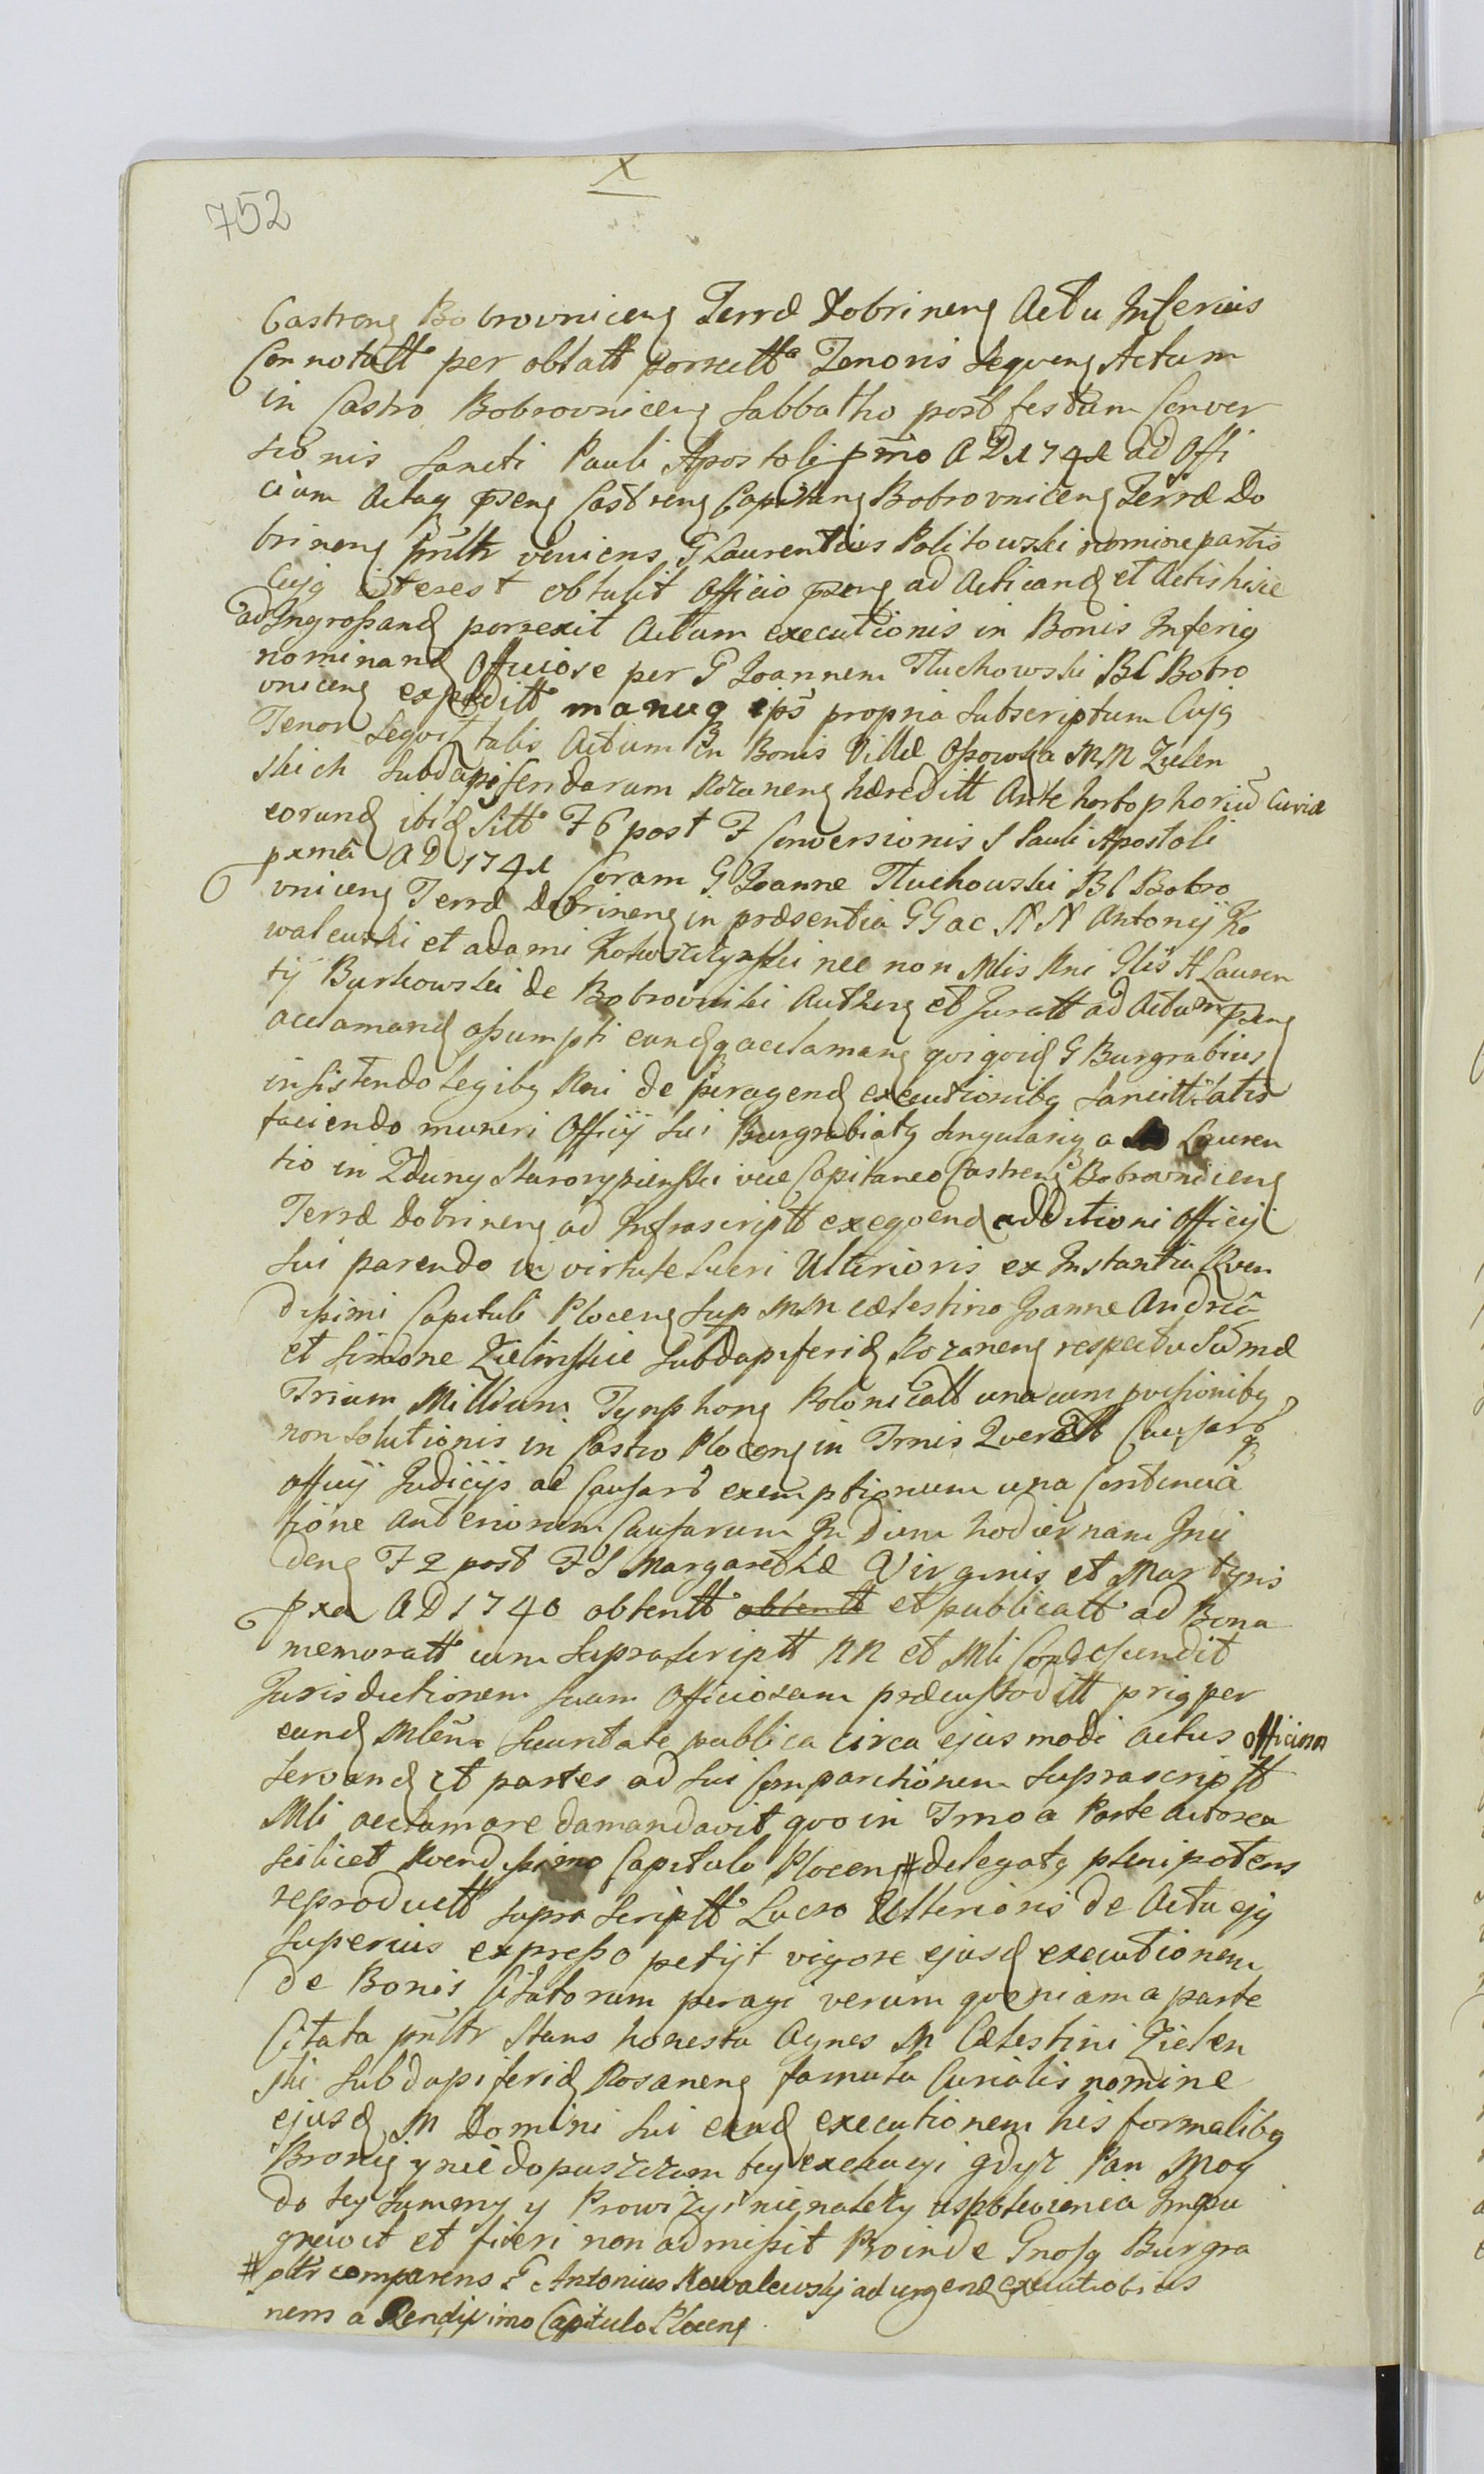 X
752
Castreng Bobrovniceng Terræ Dobrineng Actu Inferius
Connotatt° per oblatt porrectt° Tenoris Seqveng Actum
in Castro Bobrovniceng Sabbatho post festum Conver
sionis Sancti Pauli Apostoli pmo A D 1741 ad Offi
cium Actaq pseng Castreng Capitang Bobrovniceng Terræ Do
brineng pnltr veniens G Laurentius Politowski nomine partis
Cujq interest obtulit Officio pseng ad Acticand et Actis hisce
ad Ingrossand porrexit Actum executionis in Bonis Inferiq
nominand Officiose per G Joannem Tluchowski BC Bobro
vniceng expeditt° manuq ips propria Subscriptum Cujq
Tenor Seqvit talis Actum in Bonis Villæ Ossowka MM Zielen
skich Subdapiferidarum Rozaneng hæreditt Ante hortophoriu Curiæ
eorund ibid Sitt° F 6 post F Conversionis S Pauli Apostoli
pxma A D 1741 Coram G Joanne Tluchowski BC Bobro
vniceng Terræ Dobrineng in præsentia GG ac NN Antonij Ko
walewski et adami Rokoszczynski nec non Mlis Rni Glis H Lauren
tij Burkowski de Bobrowniki Autheng et Juratt ad Actum pseng
acclamand assumpti eundq acclamang qviqvid G Burgrabius
insistendo Legibq Rni de peragend executionibq Sancitt Satis
faciendo muneri Officij Sui Burgrabiatq Singulariq a Lauren
tio in Zduny Starorypinski vice Capitaneo Castreng Bobrovniceng
Terræ Dobrineng ad Infrascriptt exeqvend additioni Officij
Sui parendo in virtute Lucri Ulterioris ex Instantia Rven
dissimi Capituli Ploceng Sup MM Cælestino Joanne Andrea
et Simone Zielinskie Subdapiferid Rozaneng respectu Sumæ
Trium Millium Tynphong Polonicatt una cum provisionibq
non Solutionis in Castro Ploceng in Trnis Qverett Causarq
officij Judicijs ac Causaru exemptionum una Continua
tione Anteriorum Causarum In Diem hodiernam Inci
deng F 2 post F S Margarethæ Virginis et Martyris
pxa A D 1740 obtentt obtentt et publicatt° ad Bona
memoratt cum Suprascriptt NN et Mli Condescendit
Jurisdictionem suam Officiosam præcustoditt priq per
eund Mlem Securitate publica circa ejusmodi actus officiosa
Servand et partes ad Sui Comparitionem Suprascriptt
Mli acclamare demandavit qvo in Trno a Parte Actorea
Scilicet Rvendissimo Capitulo Ploceng # delegatq plenipotens
reproductt Supra Scriptt Lucro Ulterioris de Actu ejq
Superius expresso petijt vigore ejusd executionem
de Bonis Citatorum peragi verum qvoniam a parte
Citata pnltr Stans honesta Agnes M Cælestini Zielen
ski Subdapiferid Rosaneng famula Curialis nomine
ejusd M Domini Sui eand executionem his formalibq
Bronię y nie dopuszczam tey exekucyi gdyż Pan Moy
do tey Summy y Prowizyi nienależy uspokoienia Impu
gnavit et fieri non admissit Proinde Gnosq Burgra
# pltr comparens G Antonius Kowalewskj ad urgend executio bius
nem a Rendissimo Capitulo Ploceng